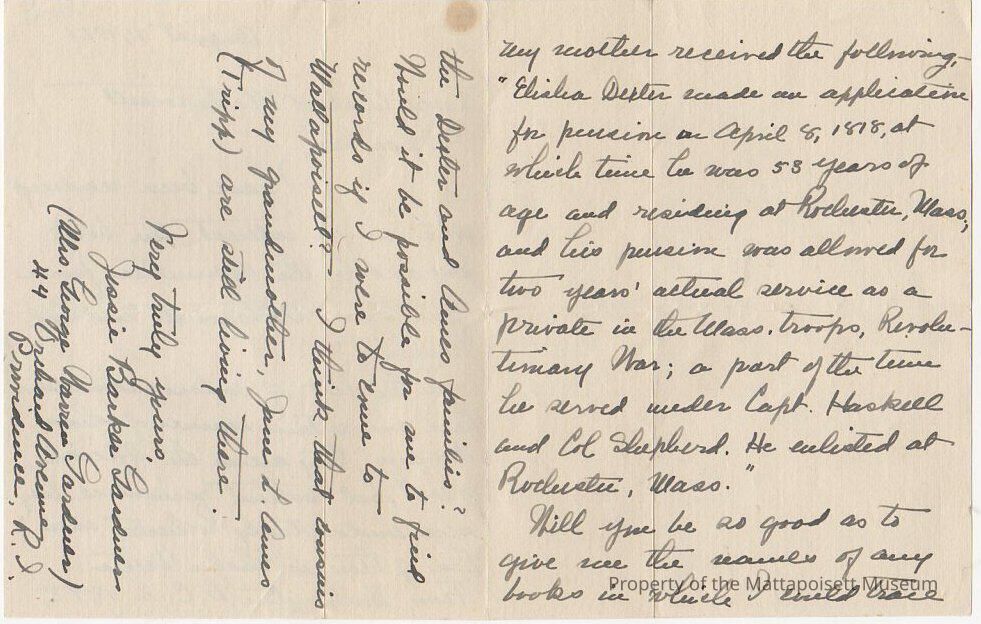 my mother received the following,—
"Elisha Dexter made an application
for pension on April 8, 1818, at
which time he was 53 years of
age and residing at Rochester, Mass.,
and his pension was allowed for
two years' actual service as a
private in the Mass. troops, Revolu-
tionary War; a part of the time
he served under Capt. Haskell
and Col Shepherd. He enlisted at
Rochester, Mass."
Will you be so good as to
give me the names of any
books in which I could trace
the Dexter and Ames families?
Would it be possible for me to find
records if I were to come to
Mattapoisett? I think that cousins
of my grandmother, Jane L Ames
(Tripp) are still living there.
Very truly yours,
Jessie Barker Gardner
(Mrs. George Warren Gardner)
44 Orchard Avenue
Providence, R.I.
Property of the Mattapoisett Museum